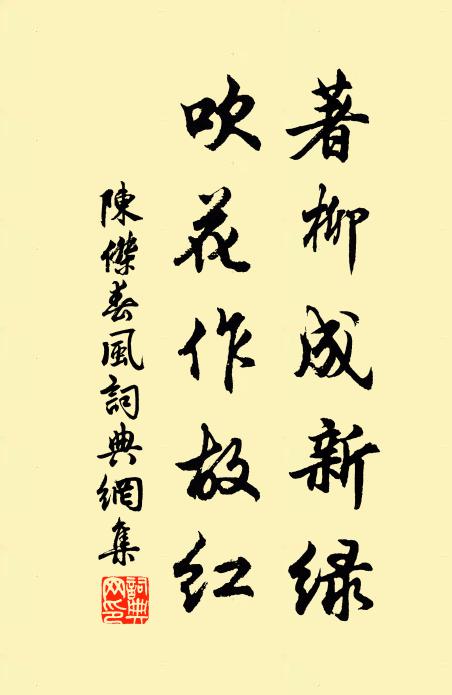 著柳成新绿
吹花作故红
陳傑春風詞典網集
詞典